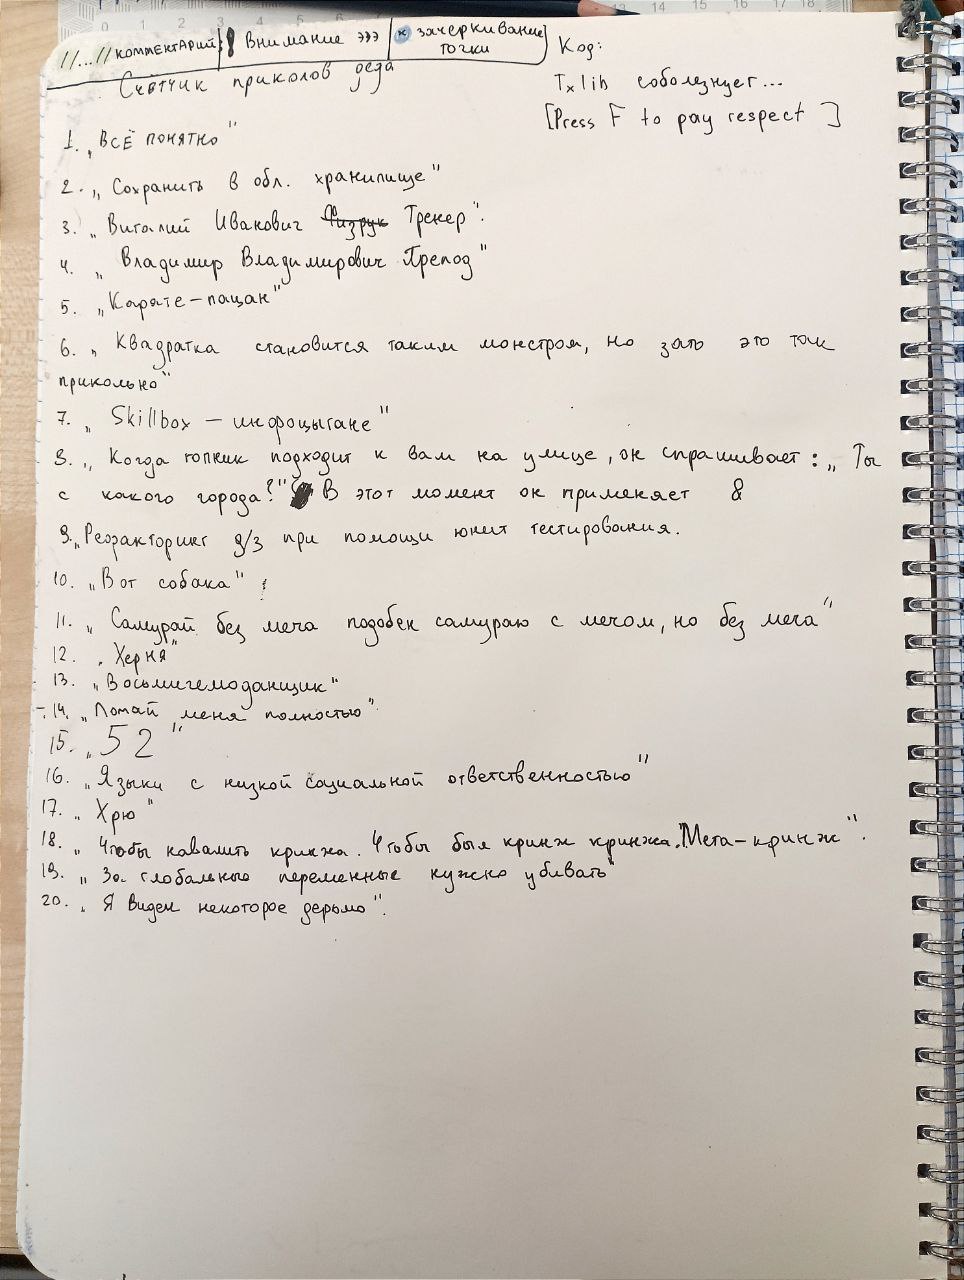 //...// комментарий ! Внимание эээ × зачеркивание
точки
Код:
Счётчик приколов деда
Txlib соболезнует...
[Press F to pay respect ]
1. „Всё понятно"
2. „Сохранить в обл. хранилище"
3. „Виталий Иванович Физрук Трекер".
4. „Владимир Владимирович Препод"
5. „Карате-пацан"
6. „Квадратка становится таким монстром, но зато это так
прикольно"
7. „Skillbox – инфоцыгане"
8. „Когда гопник подходит к вам на улице, он спрашивает: „Ты
с какого города?" В этот момент он применяет &
9. „Рефакторинг д/з при помощи юнит тестирования.
10. „Вот собака"
11. „Самурай без меча подобен самураю с мечом, но без меча"
12. „Херня"
13. „Восьмигемоданщик"
14. „Ломай меня полностью".
15. „52"
16. „Языки с низкой социальной ответственностью"
17. „Хрю"
18. „Чтобы навалить кринжа. Чтобы был кринж кринжа. Мега-кринж".
19. „За глобальные переменные нужно убивать"
20. „Я виден некоторое дерьмо".